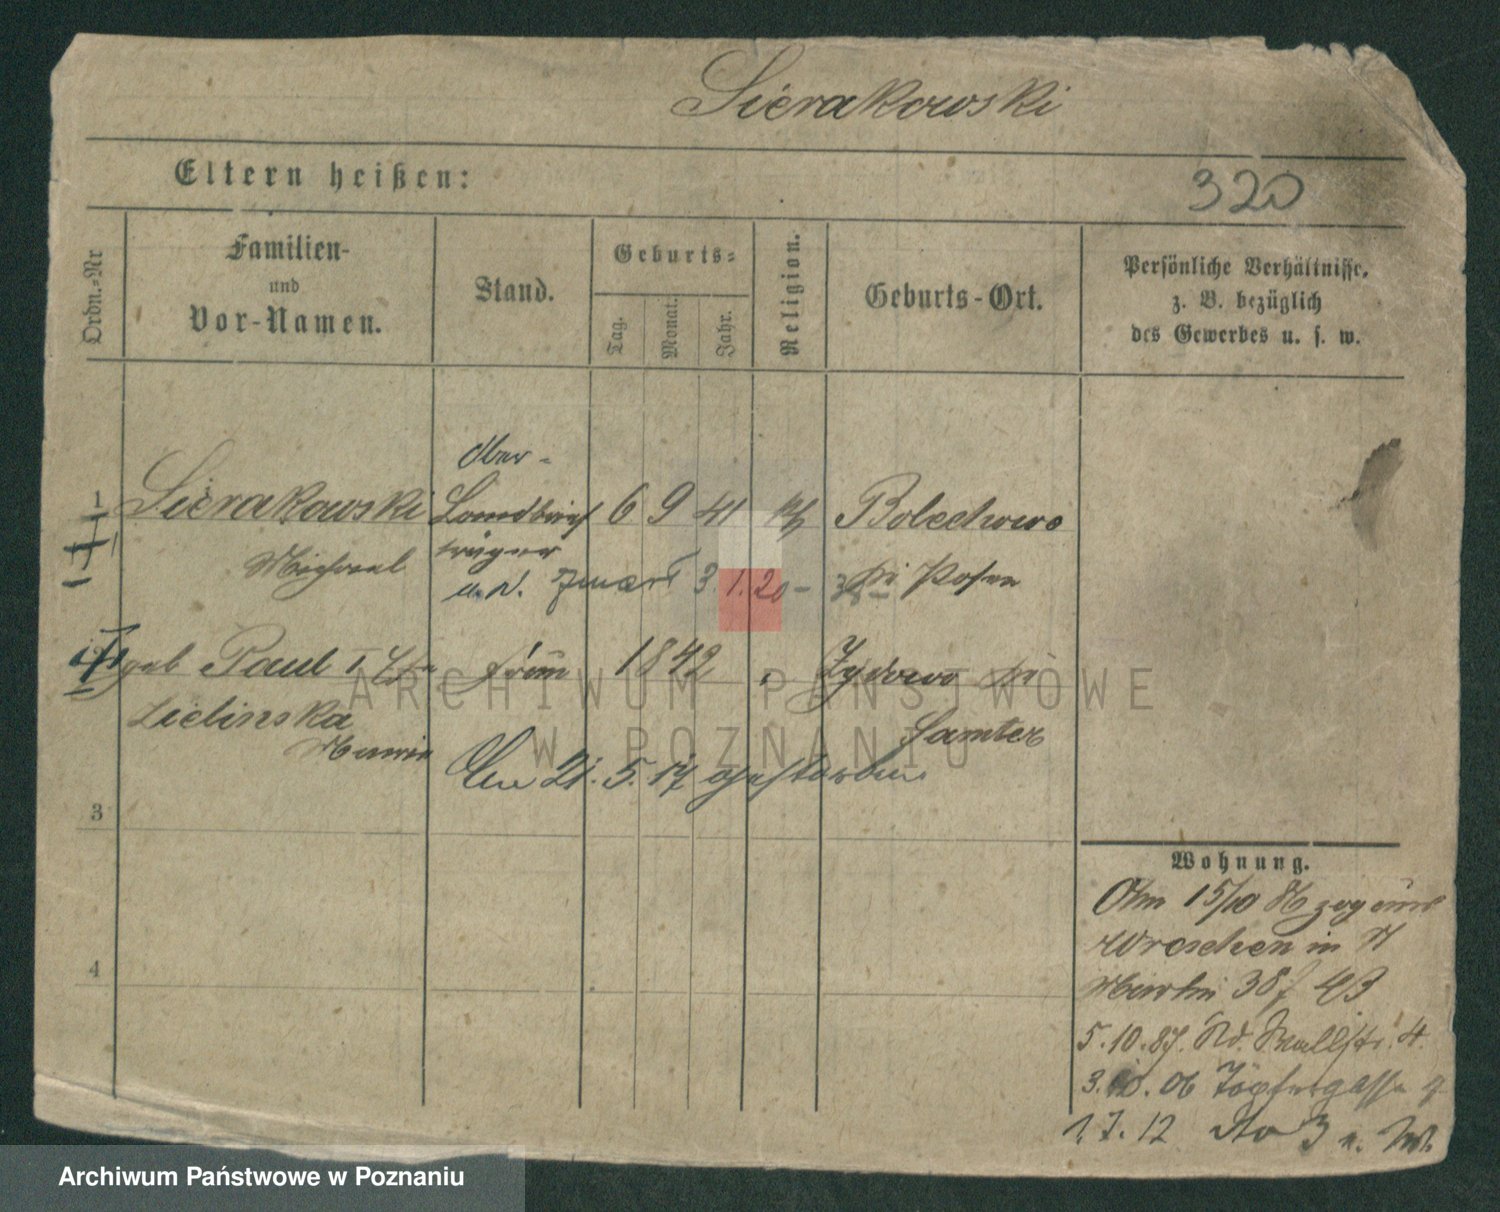 Sierakowski
Eltern heißen:
320
Ordn.-Nr
Familien-
und
Vor-Namen.
Stand.
Geburts-
Tag.
Monat.
Jahr.
Religion.
Geburts-Ort.
Persönliche Verhältnisse,
z. B. bezüglich
des Gewerbes u. s. w.
Ober-
1 Sierakowski Landbrief 6 9 41 kth Bolechowo
träger
Michael
3.1.20 Posen
geb Paul Frau 1842 Zydowo
Zielinska
Samter
Maria
Am 21.5.17 gestorben.
3
4
Wohnung.
15/10 zog aus
Wreschen in
Martin 38
5.10.87. Wallstr. 4.
3.10.06 Töpfergasse
1.7.12 dto 3
ARCHIWUM PAŃSTWOWE
W POZNANIU
Archiwum Państwowe w Poznaniu